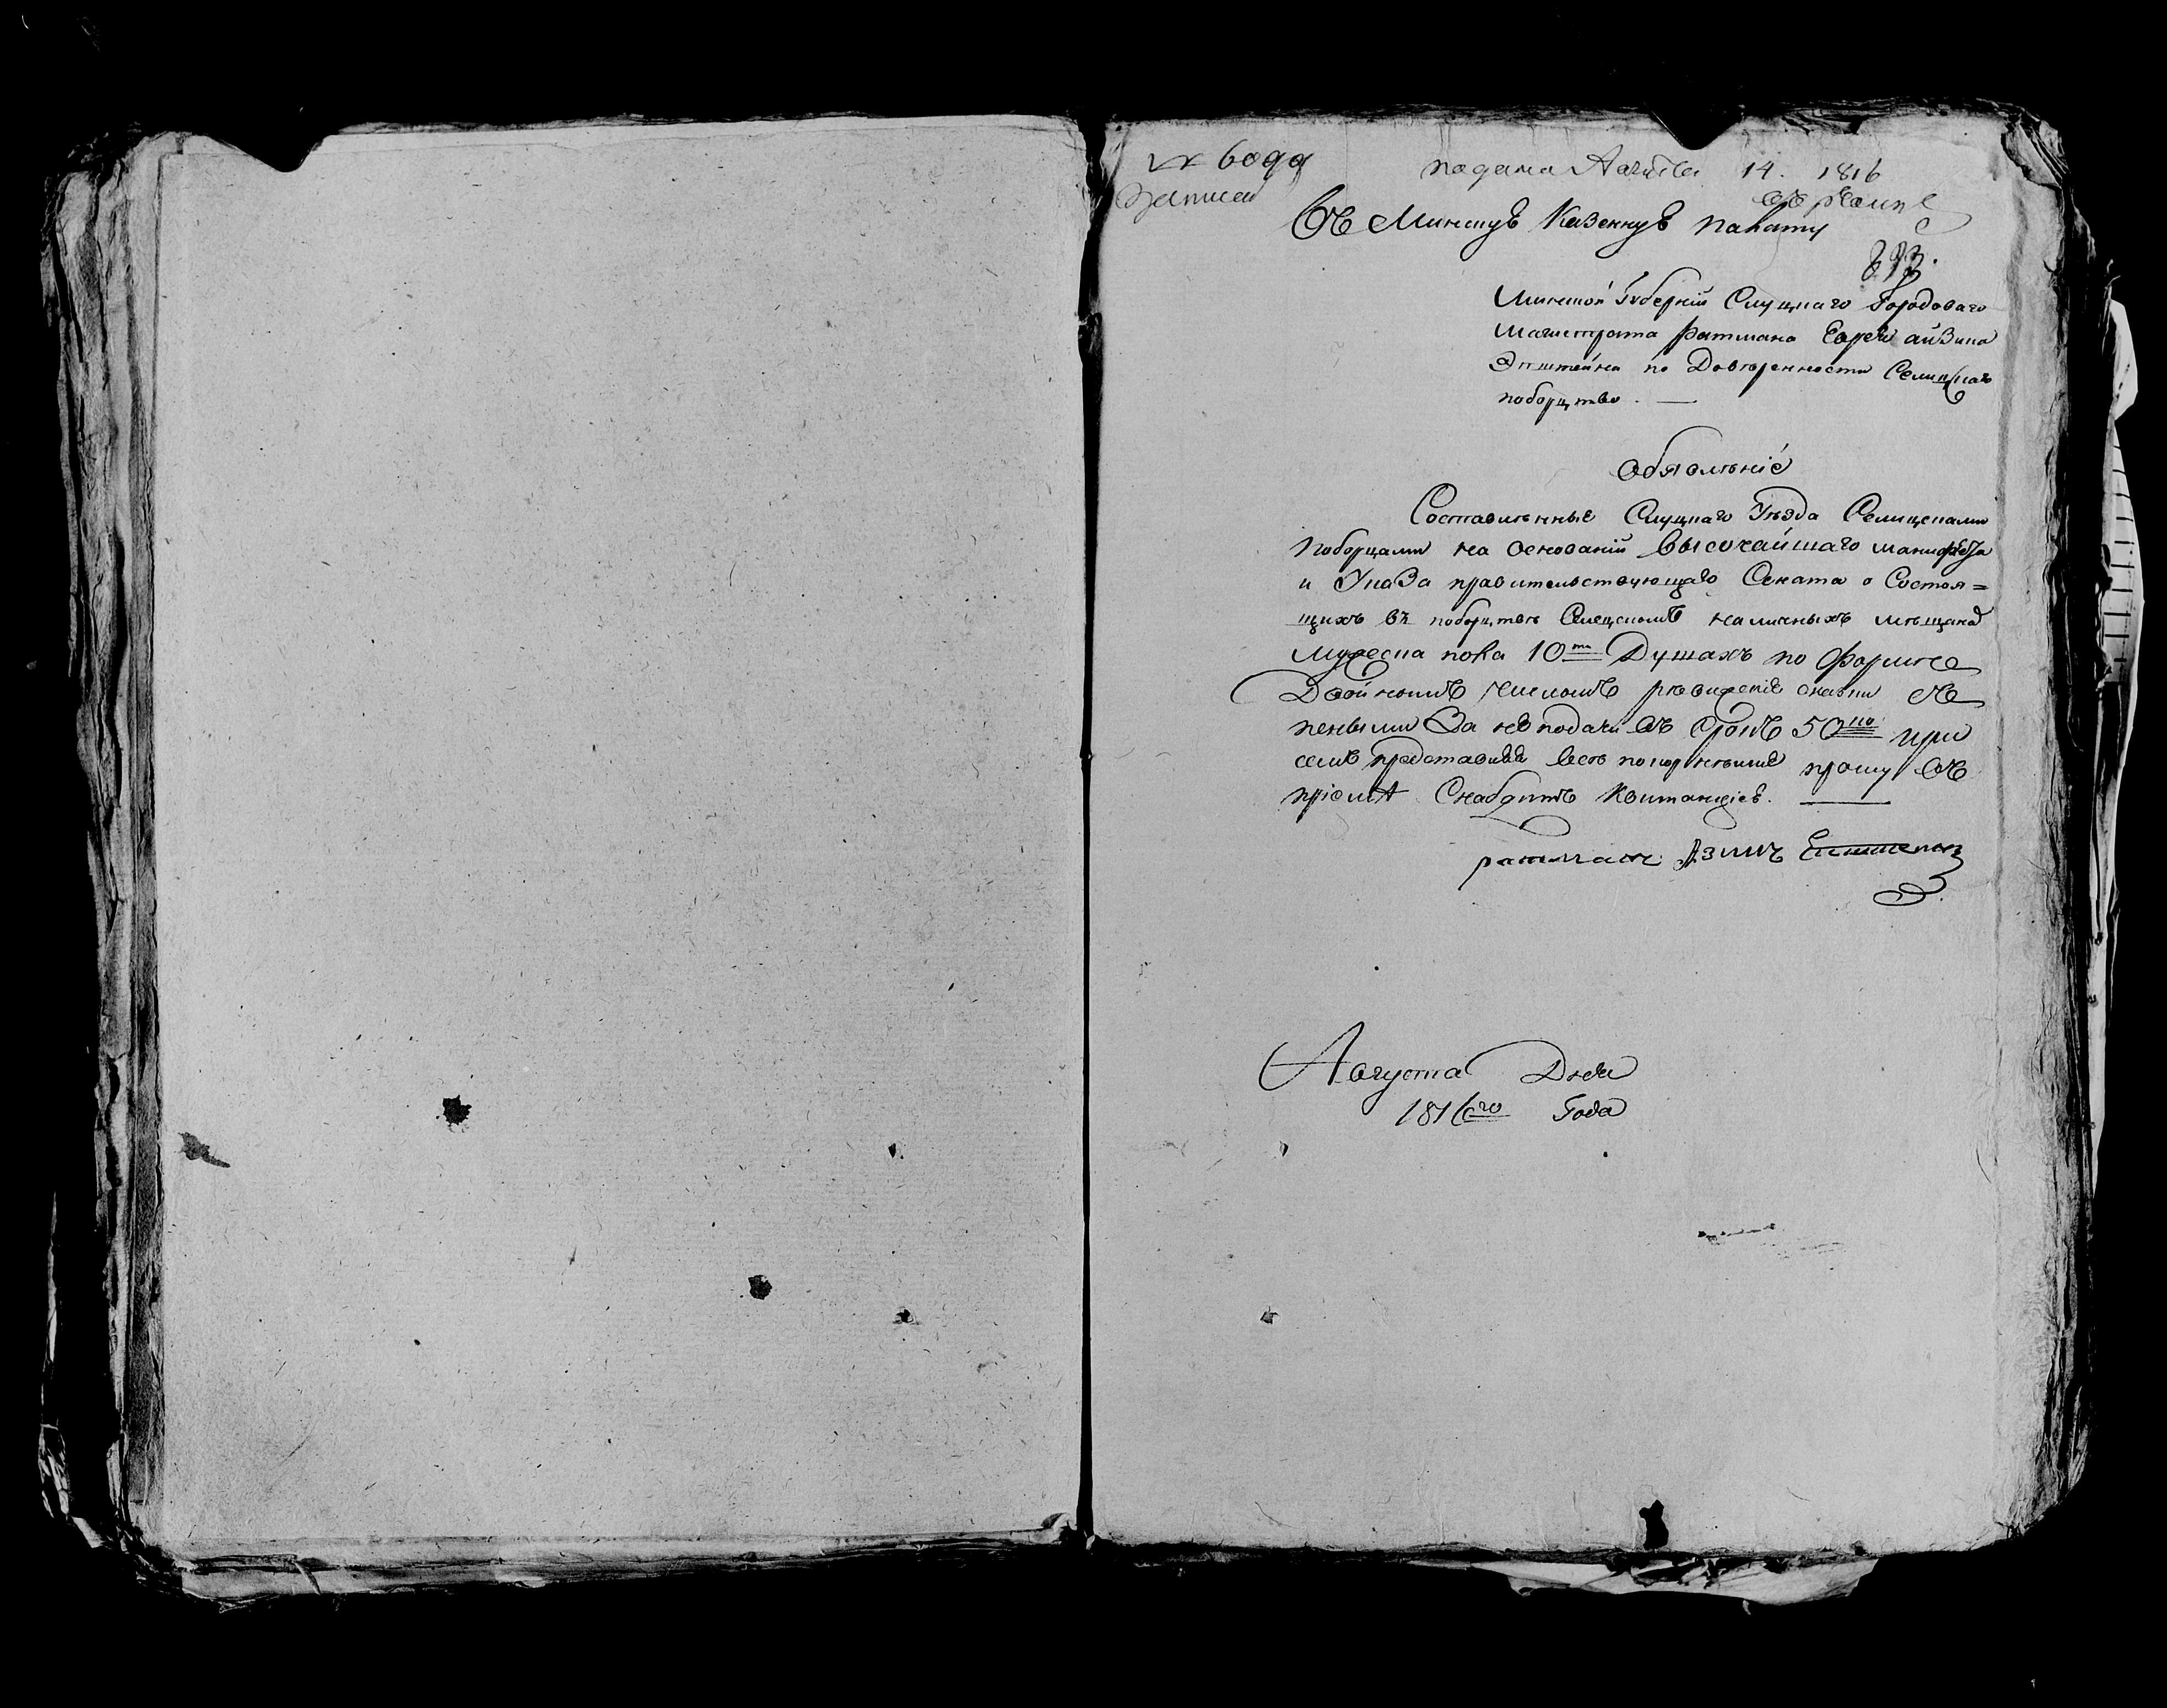 № 6099
подана Августа 14. 1816
Записав
Въ Минскую Казенную палату
Минской Губерніи Слуцкаго Городоваго
Магистрата Ратмана Еврея Айзика
Эпштейна по Доверенности Селецкаго
поборцтва. —
Обявленіе
Составленные Слуцкаго Уезда Селецкими
поборцами на основаніи Высочайшаго манифеста
и Указа правительствующаго Сената о Состоя=
щихъ въ поборцтве Селецкомъ наличныхъ мещанъ
мужеска пола 10ти Душахъ по форме
Двойнымъ числомъ ревижскіе сказки съ
пенными За неподачи въ срокъ 50ю при
семъ представивъ прошу въ
пріеме Снабдить Квитанціею. —
ратманъ Эпштейнъ
Августа Дня
1816го Года